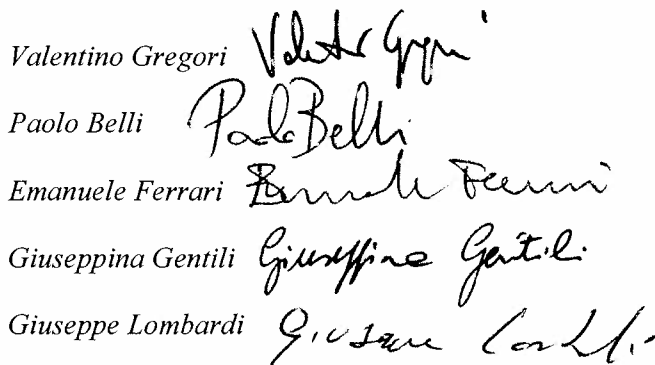 Valentino Gregori Valentino Gregori
Paolo Belli Paolo Belli
Emanuele Ferrari Emanuele Ferrari
Giuseppina Gentili Giuseppina Gentili
Giuseppe Lombardi Giuseppe Lombardi